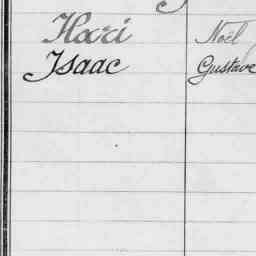 Hari Noël
Isaac Gustave